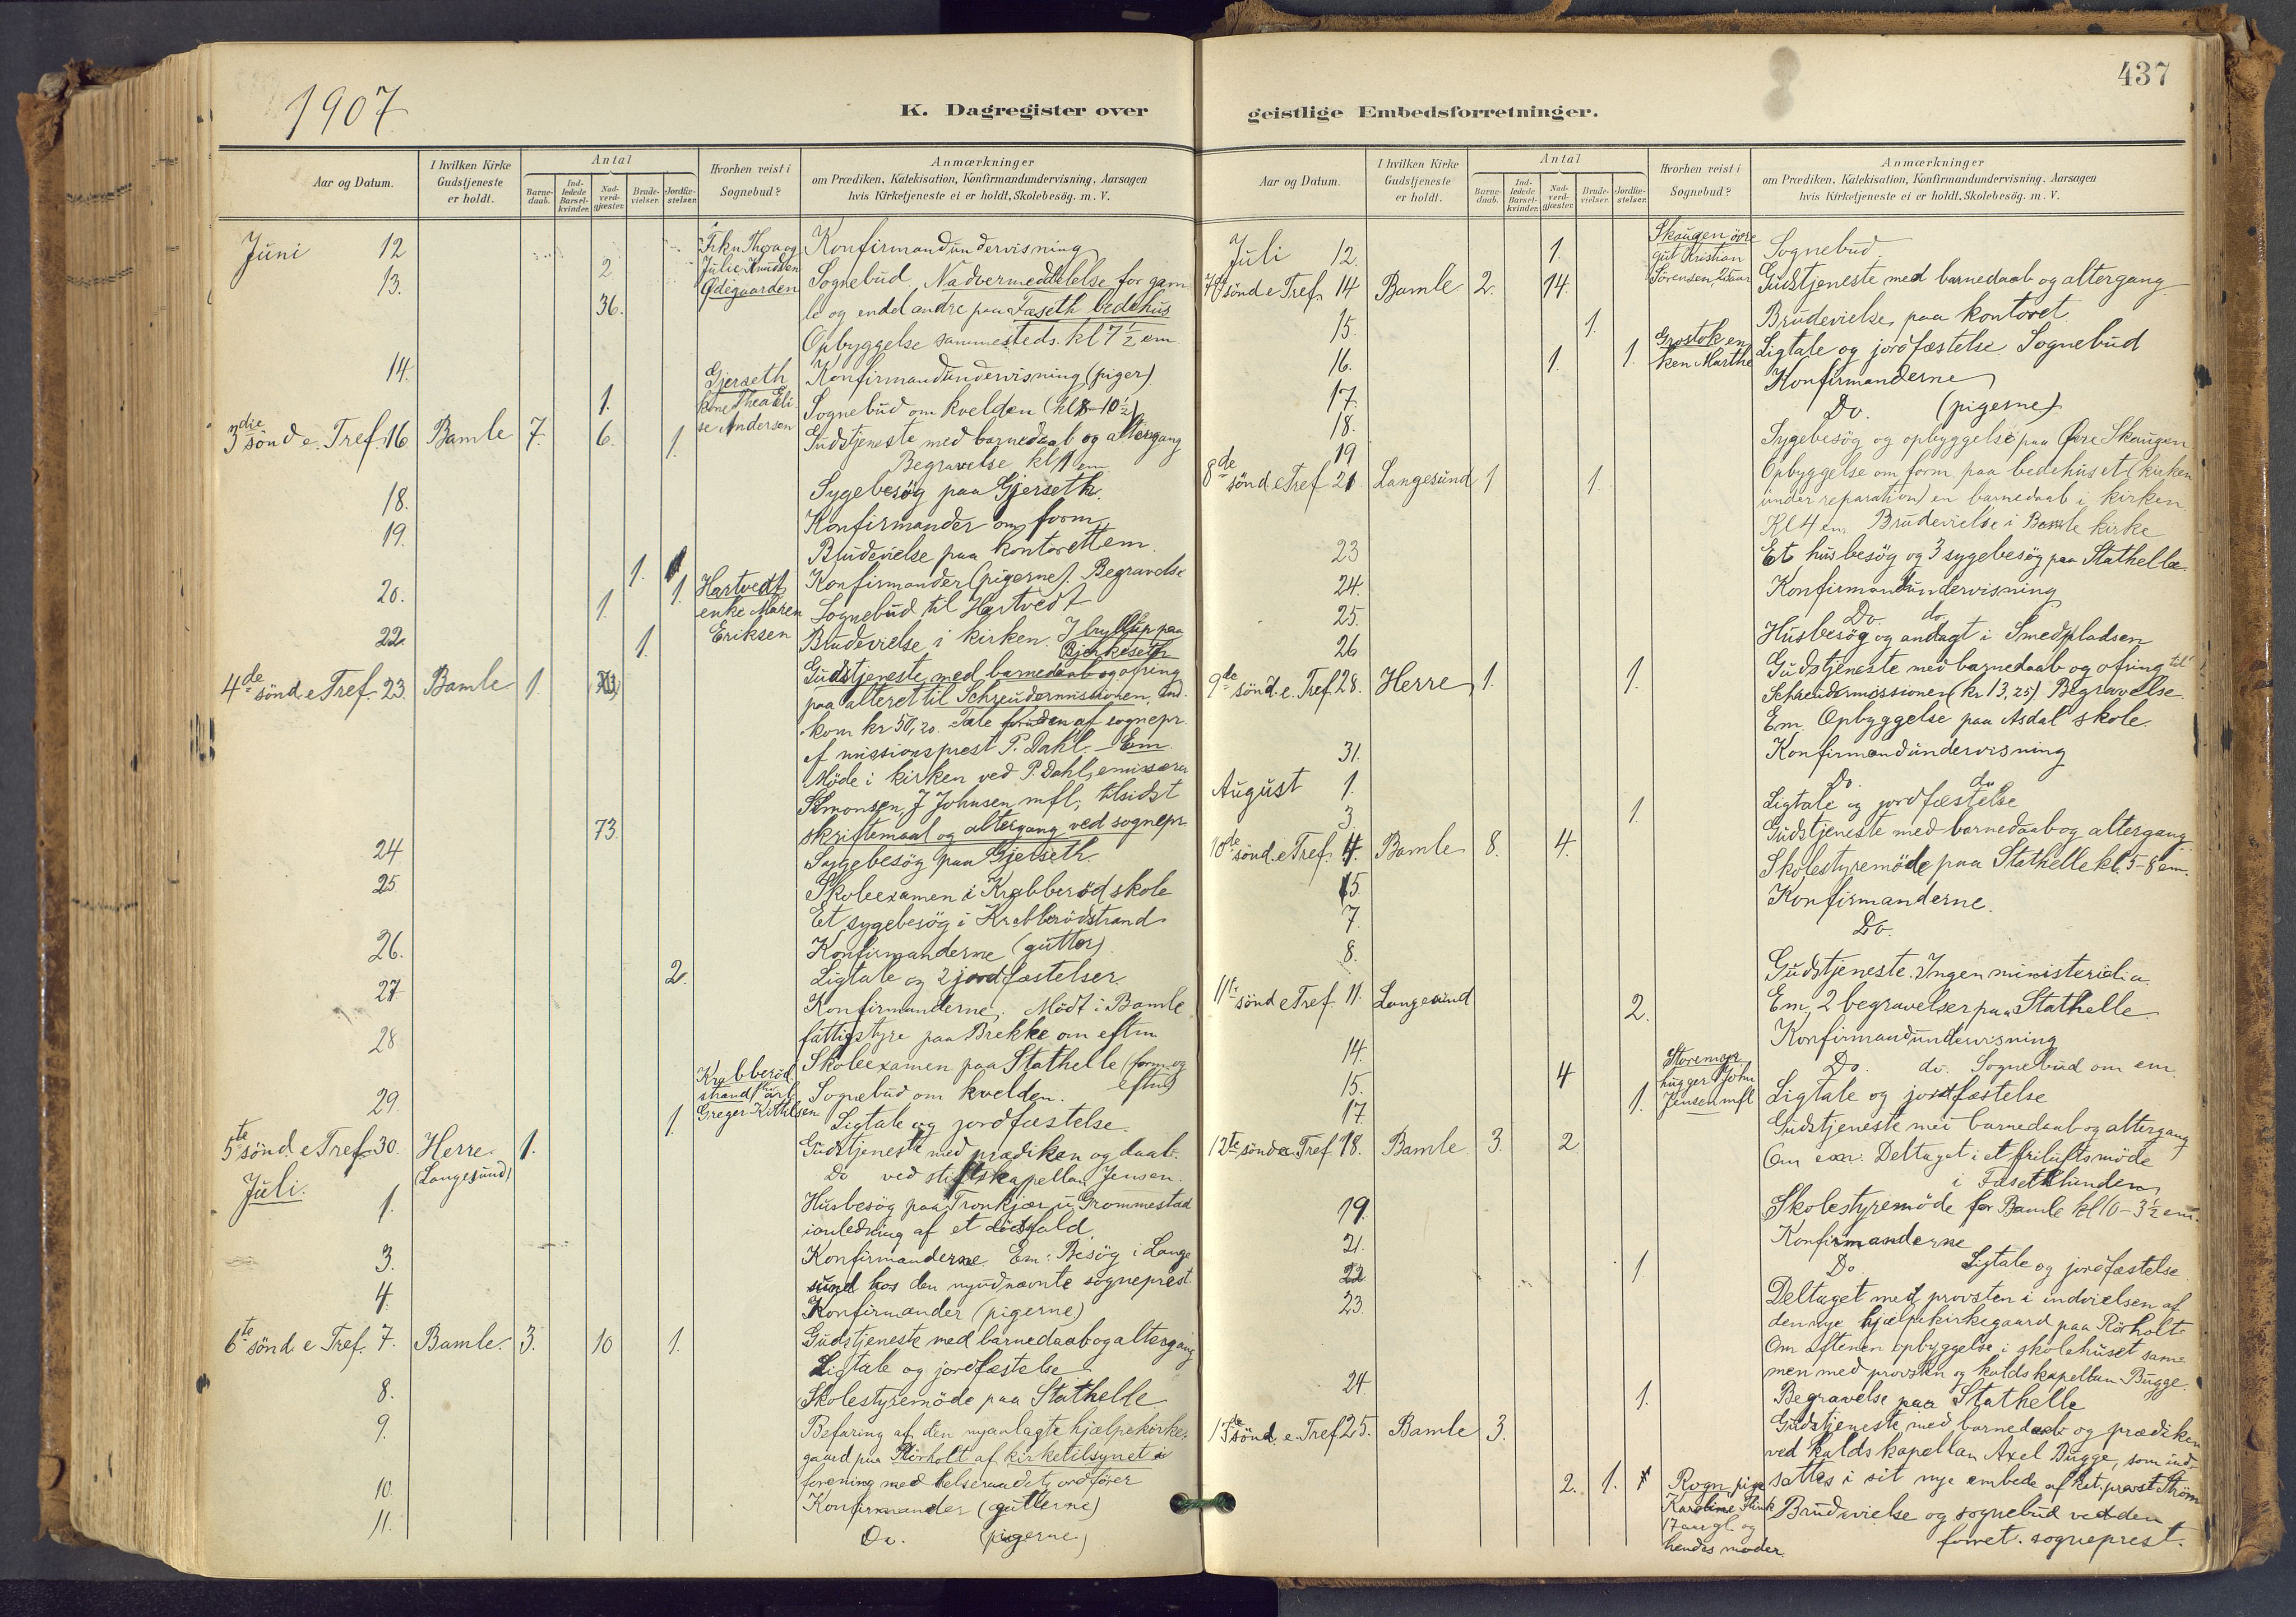 1907
K. Dagregister over
Aar og Datum.
I hvilken Kirke Gudstjeneste er holdt.
Antal
Barne-daab.
Ind-ledede Barsel-kvinder.
Nad-verd-gjæster.
Brude-vielser.
Jordfæ-stelser.
Hvorhen reist i Sognebud?
Anmærkninger
om Prædiken, Katekisation, Konfirmandundervisning, Aarsagen
hvis Kirketjeneste ei er holdt, Skolebesög. m. V.
Juni 12 Konfirmandundervisning
13. 2 Thora og Julie Knudsen Sognebud Nadvermeddelelse for gam
36. Ødegaarden le og endel andre paa Fæseth bedehus
Opbyggelse sammesteds. kl 7½ em
14. Gjerseth Konfirmandundervisning (piger)
1. kone Thea Eli-se Andersen Sognebud om kvelden (kl 8-10½)
3die sönd e. Tref. 16 Bamle 7. 6. 1. Gudstjeneste med barnedaab og altergang
Begravelse kl 1 em
18. Sygebesög paa Gjerseth.
19. Konfirmander om form.
1. Brudevielse paa kontoret em.
20. 1. 1. Hartvedt Konfirmander (pigerne). Begravelse
enke Maren Eriksen Sognebud til Hartvedt
22 1. Brudevielse i kirken. I bryllup paa
Bjerkeseth
4de sönd e Tref. 23. Bamle 1. Gudstjeneste med barnedaab og ofring
paa alteret til Schreudermissionen. Ind-
kom kr 50,20. Tale foruden af sognepr.
af missionsprest P. Dahl. – Em
Möde i kirken ved P. Dahl, emissærer
Simonsen, J Johnsen mfl, tilsidst
73. skriftemaal og altergang ved sognepr.
24 Sygebesög paa Gjerseth
25 Skoleexamen i Krabberöd skole
Et sygebesög i Krabberödstrand
26. Konfirmanderne (gutter)
2. Ligtale og 2 jordfæstelser
27 Konfirmanderne. Mödt i Bamle
fattigstyre paa Brekke om eftm
28 Skoleexamen paa Stathelle (form. og
Krabberöd strand Greger Kittilsen Sognebud om kvelden. eftm)
29. 1. Ligtale og jordfæstelse.
5te sönd. e Tref 30. Herre 1. Gudstjeneste med prædiken og daab.
(Langesund) Do ved stiftskapellan Jensen.
Juli. 1. Husbesög paa Tronkjær u Grommestad
i anledning af et dödsfald.
3. Konfirmanderne. Em: Besög i Lange
sund hos den nyudnævnte sogneprest.
4. Konfirmander (pigerne)
6te sönd e Tref. 7. Bamle. 3. 10 1. Gudstjeneste med barnedaab og altergang
Ligtale og jordfæstelse
8. Skolestyremöde paa Stathelle
9. Befaring af den nyanlagte hjælpekirke-
gaard paa Rörholt af kirketilsynet i
forening med helseraadets ordförer
10. Konfirmander (gutterne)
11. Do. (pigerne)
437
geistlige Embedsforretninger.
Aar og Datum.
I hvilken Kirke Gudstjeneste er holdt.
Antal
Barne-daab.
Ind-ledede Barsel-kvinder.
Nad-verd-gjæster.
Brude-vielser.
Jordfæ-stelser.
Hvorhen reist i Sognebud?
Anmærkninger
om Prædiken, Katekisation, Konfirmandundervisning, Aarsagen
hvis Kirketjeneste ei er holdt, Skolebesög. m. V.
Juli 12. 1. Skaugen övre gut Kristian Sörensen Sognebud
7de sönd e Tref. 14 Bamle 2. 14. Gudstjeneste med barnedaab og altergang
15. 1. Brudevielse paa kontoret
16. 1. 1. Grostok en-ken Marthe Ligtale og jordfæstelse. Sognebud
17. Konfirmanderne
18. Do. (pigerne)
19 Sygebesög og opbyggelse paa Övre Skaugen
8de sönd e Tref 21 Langesund 1 1. Opbyggelse om form. paa bedehuset (kirken
under reparation) en barnedaab i kirken
Kl 4 em. Brudevielse i Bamle kirke
23 Et husbesög og 3 sygebesög paa Stathelle
24. Konfirmandundervisning
25. Do. do.
26 Husbesög og andagt i Smedpladsen
9de sönd. e. Tref. 28. Herre 1. 1. Gudstjeneste med barnedaab og ofring til
Schreudermissionen (kr 13,25) Begravelse
Em. Opbyggelse paa Asdal skole
31. Konfirmandundervisning
August 1. Do. do
3. 1. Ligtale og jordfæstelse
10de sönd. e Tref. 4. Bamle 8. 4. Gudstjeneste med barnedaab og altergang
5. Skolestyremöde paa Stathelle kl. 5-8 em.
7. Konfirmanderne.
8. Do.
11te sönd e Tref. 11. Langesund Gudstjeneste. Ingen ministerialia.
2. Em, 2 begravelser paa Stathelle
14. Konfirmandundervisning
15. 4 John Jensen mfl Do. do. Sognebud om em.
17. 1. Ligtale og jordfæstelse
12te sönd e Tref. 18. Bamle 3. 2 Gudstjeneste med barnedaab og altergang
Om em. Deltaget i et friluftsmöde
i Fæsethlunden
19. Skolestyremöde for Bamle kl 10-3½ em.
21. Konfirmanderne
22 1. Do Ligtale og jordfæstelse
23. Deltaget med provsten i indvielsen af
den nye hjælpekirkegaard paa Rörholt
Om aftenen opbyggelse i skolehuset sam-
men med provsten og kaldskapellan Bugge.
24. 1. Begravelse paa Stathelle
13de sönd. e. Tref 25. Bamle 3. Gudstjeneste med barnedaab og prædiken
ved kaldskapellan Axel Bugge, som ind-
2. 1. Rogn, pige sattes i sit nye embede af kst. provst Ström
Karoline Flink Brudevielse og sognebud ved den
17 aar gl. og hendes moder. forret. sogneprest.